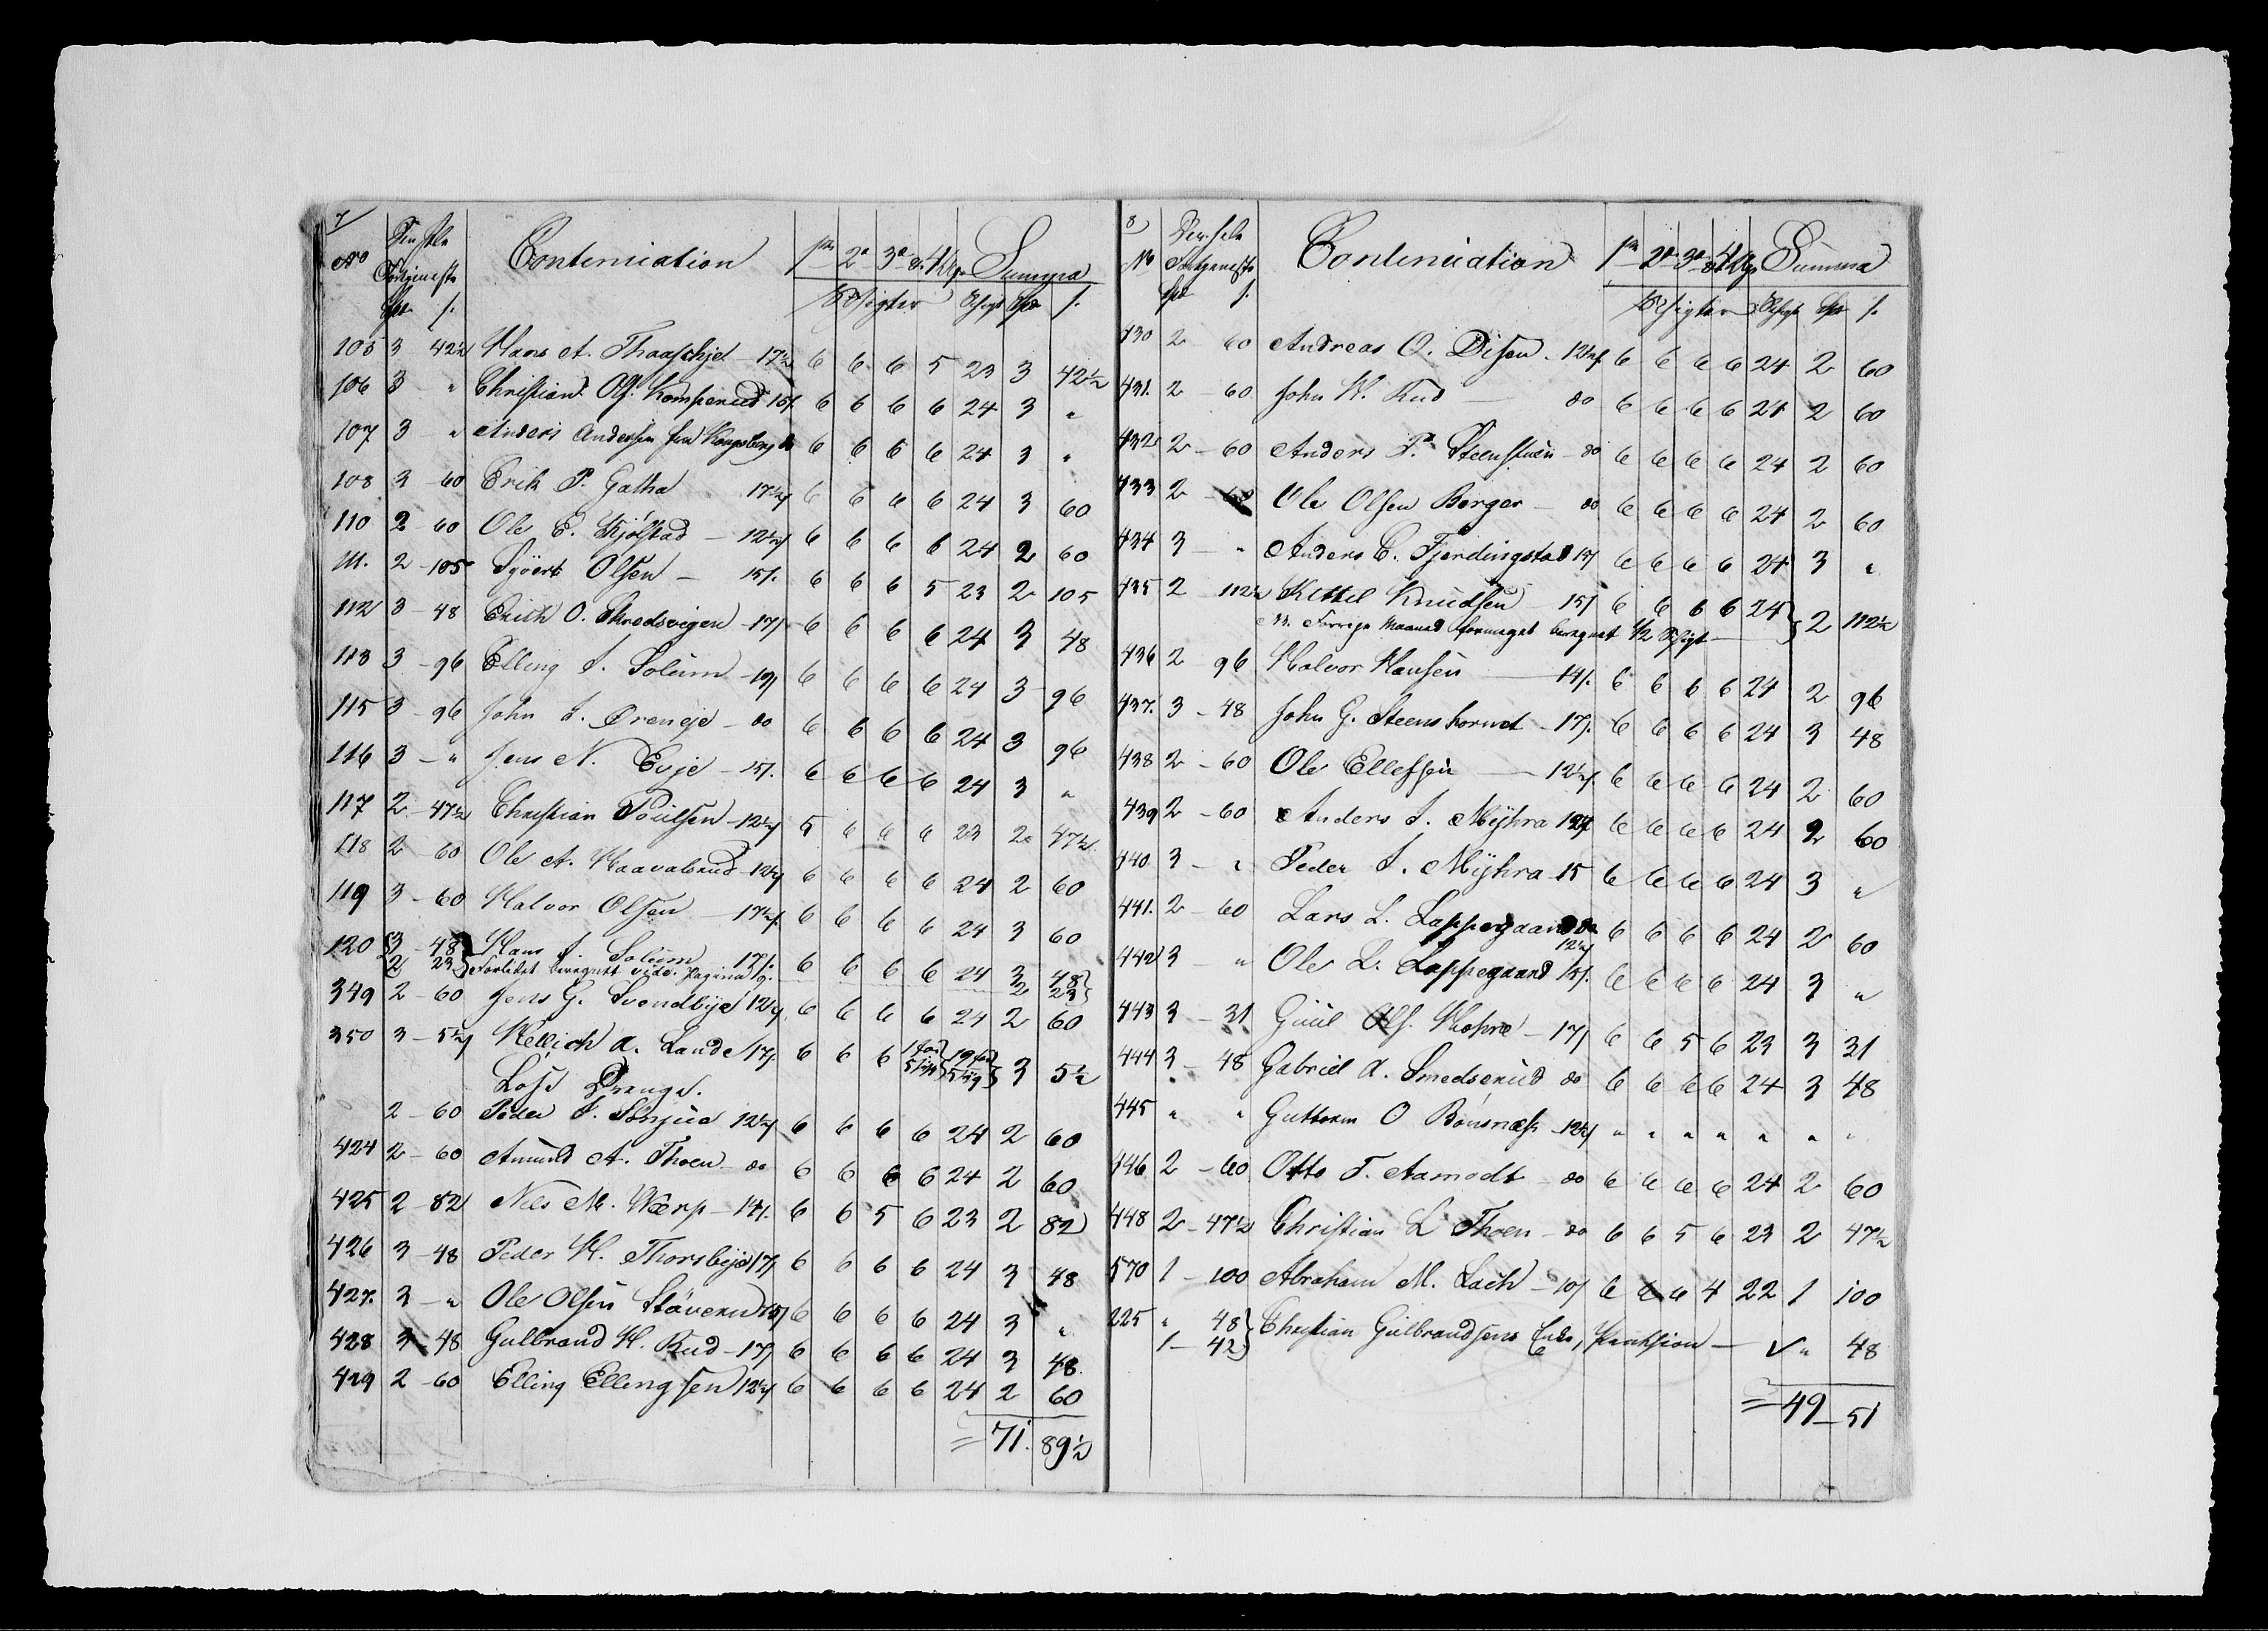 7/
No Contenuation 1ste 2den 3die & 4de Uge Summa
Fortjeneste
Spd. s. Schigter Schigt Spd s.
105 3 - 42½ Hans A. Thaaschjel - 17½ 6 6 6 5 23 3 42½
106 3 - " Christian Ols. Komperud 15s. 6 6 6 6 24 3 "
107 3 - " Anders Andersen fra Kongsberg do 6 6 6 6 24 3 "
108 3 - 60 Erik P. Gatha 17½s 6 6 6 6 24 3 60
110 2 - 60 Ole E. Kjølstad - 12½s 6 6 6 6 24 2 60
111. 2 - 105 Syvert Olsen - 15s. 6 6 6 5 23 2 105
112 3 - 48 Erich O. Skredsvigen - 17s 6 6 6 6 24 3 48
113 3 - 96 Elling J. Solum - 19s 6 6 6 6 24 3 96
115 3 - 96 John J. Øreneje - do 6 6 6 6 24 3 96
116 3 - " Jens N. Evje - 15s. 6 6 6 6 24 3 "
117 2 - 47½ Christian Poulsen - 12½s 5 6 6 6 23 2 47½
118 2 - 60 Ole A. Haavalsrud - 12½s 6 6 6 6 24 2 60
119 3 - 60 Halvor Olsen - 17½s. 6 6 6 6 24 3 60
120 3 - 48 Hans J. Solum 17s. 6 6 6 6 24 3 48
2 23 Forlidet beregnett vide Pagina 9. 2 23
349 2 - 60 Jens G. Svendbye 12½s. 6 6 6 6 24 2 60
350 3 - 5½ Hellich A. Lande 17s. 6 6 6 3 5½
Løse Drenge.
2 - 60 Peder J. Sønjue 12½s 6 6 6 6 24 2 60
424 2 - 60 Amund A. Thoen - do 6 6 6 6 24 2 60
425 2 - 82 Nils M. Værp - 14s. 6 6 5 6 23 2 82
426 3 - 48 Peder H. Thorsbye 17s 6 6 6 6 24 3 48
427. 3 - " Ole Olsen Støverud 15s 6 6 6 6 24 3 "
428 3 - 48 Gulbrand H. Rud - 17s 6 6 6 6 24 3 48.
429 2 - 60 Elling Ellingsen 12½s 6 6 6 6 24 2 60
= 71. 89½
8)
No Contenuation 1ste 2den 3die & 4de Uge Summa
Fortjeneste
Spd s. Schigter Schigt Spd s.
430 2 - 60 Andreas O. Disen. 12½s. 6 6 6 6 24 2 60
431. 2 - 60 John H. Rud - do 6 6 6 6 24 2 60
432 2 - 60 Anders P. Steenstuen - do 6 6 6 6 24 2 60
433 2 - 60 Ole Olsen Berger - do 6 6 6 6 24 2 60
434 3 - " Anders C. Fjerdingstad 15s 6 6 6 6 24 3 "
435 2 - 112½ Kittel Knudsen - 15s 6 6 6 6 24 2 112½
Forrige Maaned formeget beregnet 1/2 Schigt -
436 2 96 Halvor Hansen - 14s. 6 6 6 6 24 2 96
437. 3 - 48 John G. Steenshorned - 17s. 6 6 6 6 24 3 48
438 2 - 60 Ole Ellefsen - 12½s. 6 6 6 6 24 2 60
439 2 - 60 Anders J. Mÿhra 12½s 6 6 6 6 24 2 60
440 3 - " Peder J. Mÿhra - 15 6 6 6 6 24 3 "
441. 2 - 60 Lars L. Lappegaard 12½s 6 6 6 6 24 2 60
442 3 - " Ole L. Lappegaard 15s. 6 6 6 6 24 3 "
443 3 - 31 Guul Ols. Kopræ - 17s 6 6 5 6 23 3 31
444 3 - 48 Gabriel A. Smedserud do 6 6 6 6 24 3 48
445 " " Guttorm O Bønsnæs - 12½s " " " " " " "
446 2 - 60 Otto T. Aamodt - do 6 6 6 6 24 2 60
448 2 - 47½ Christian L Thoen - do 6 6 5 6 23 2 47½
570 1 - 100 Abraham M. Lach - 10s 6 6 6 4 22 1 100
225 " 48 Christian Gulbrandsens Enke, Pention - " 48
1 - 42
= 49 - 51